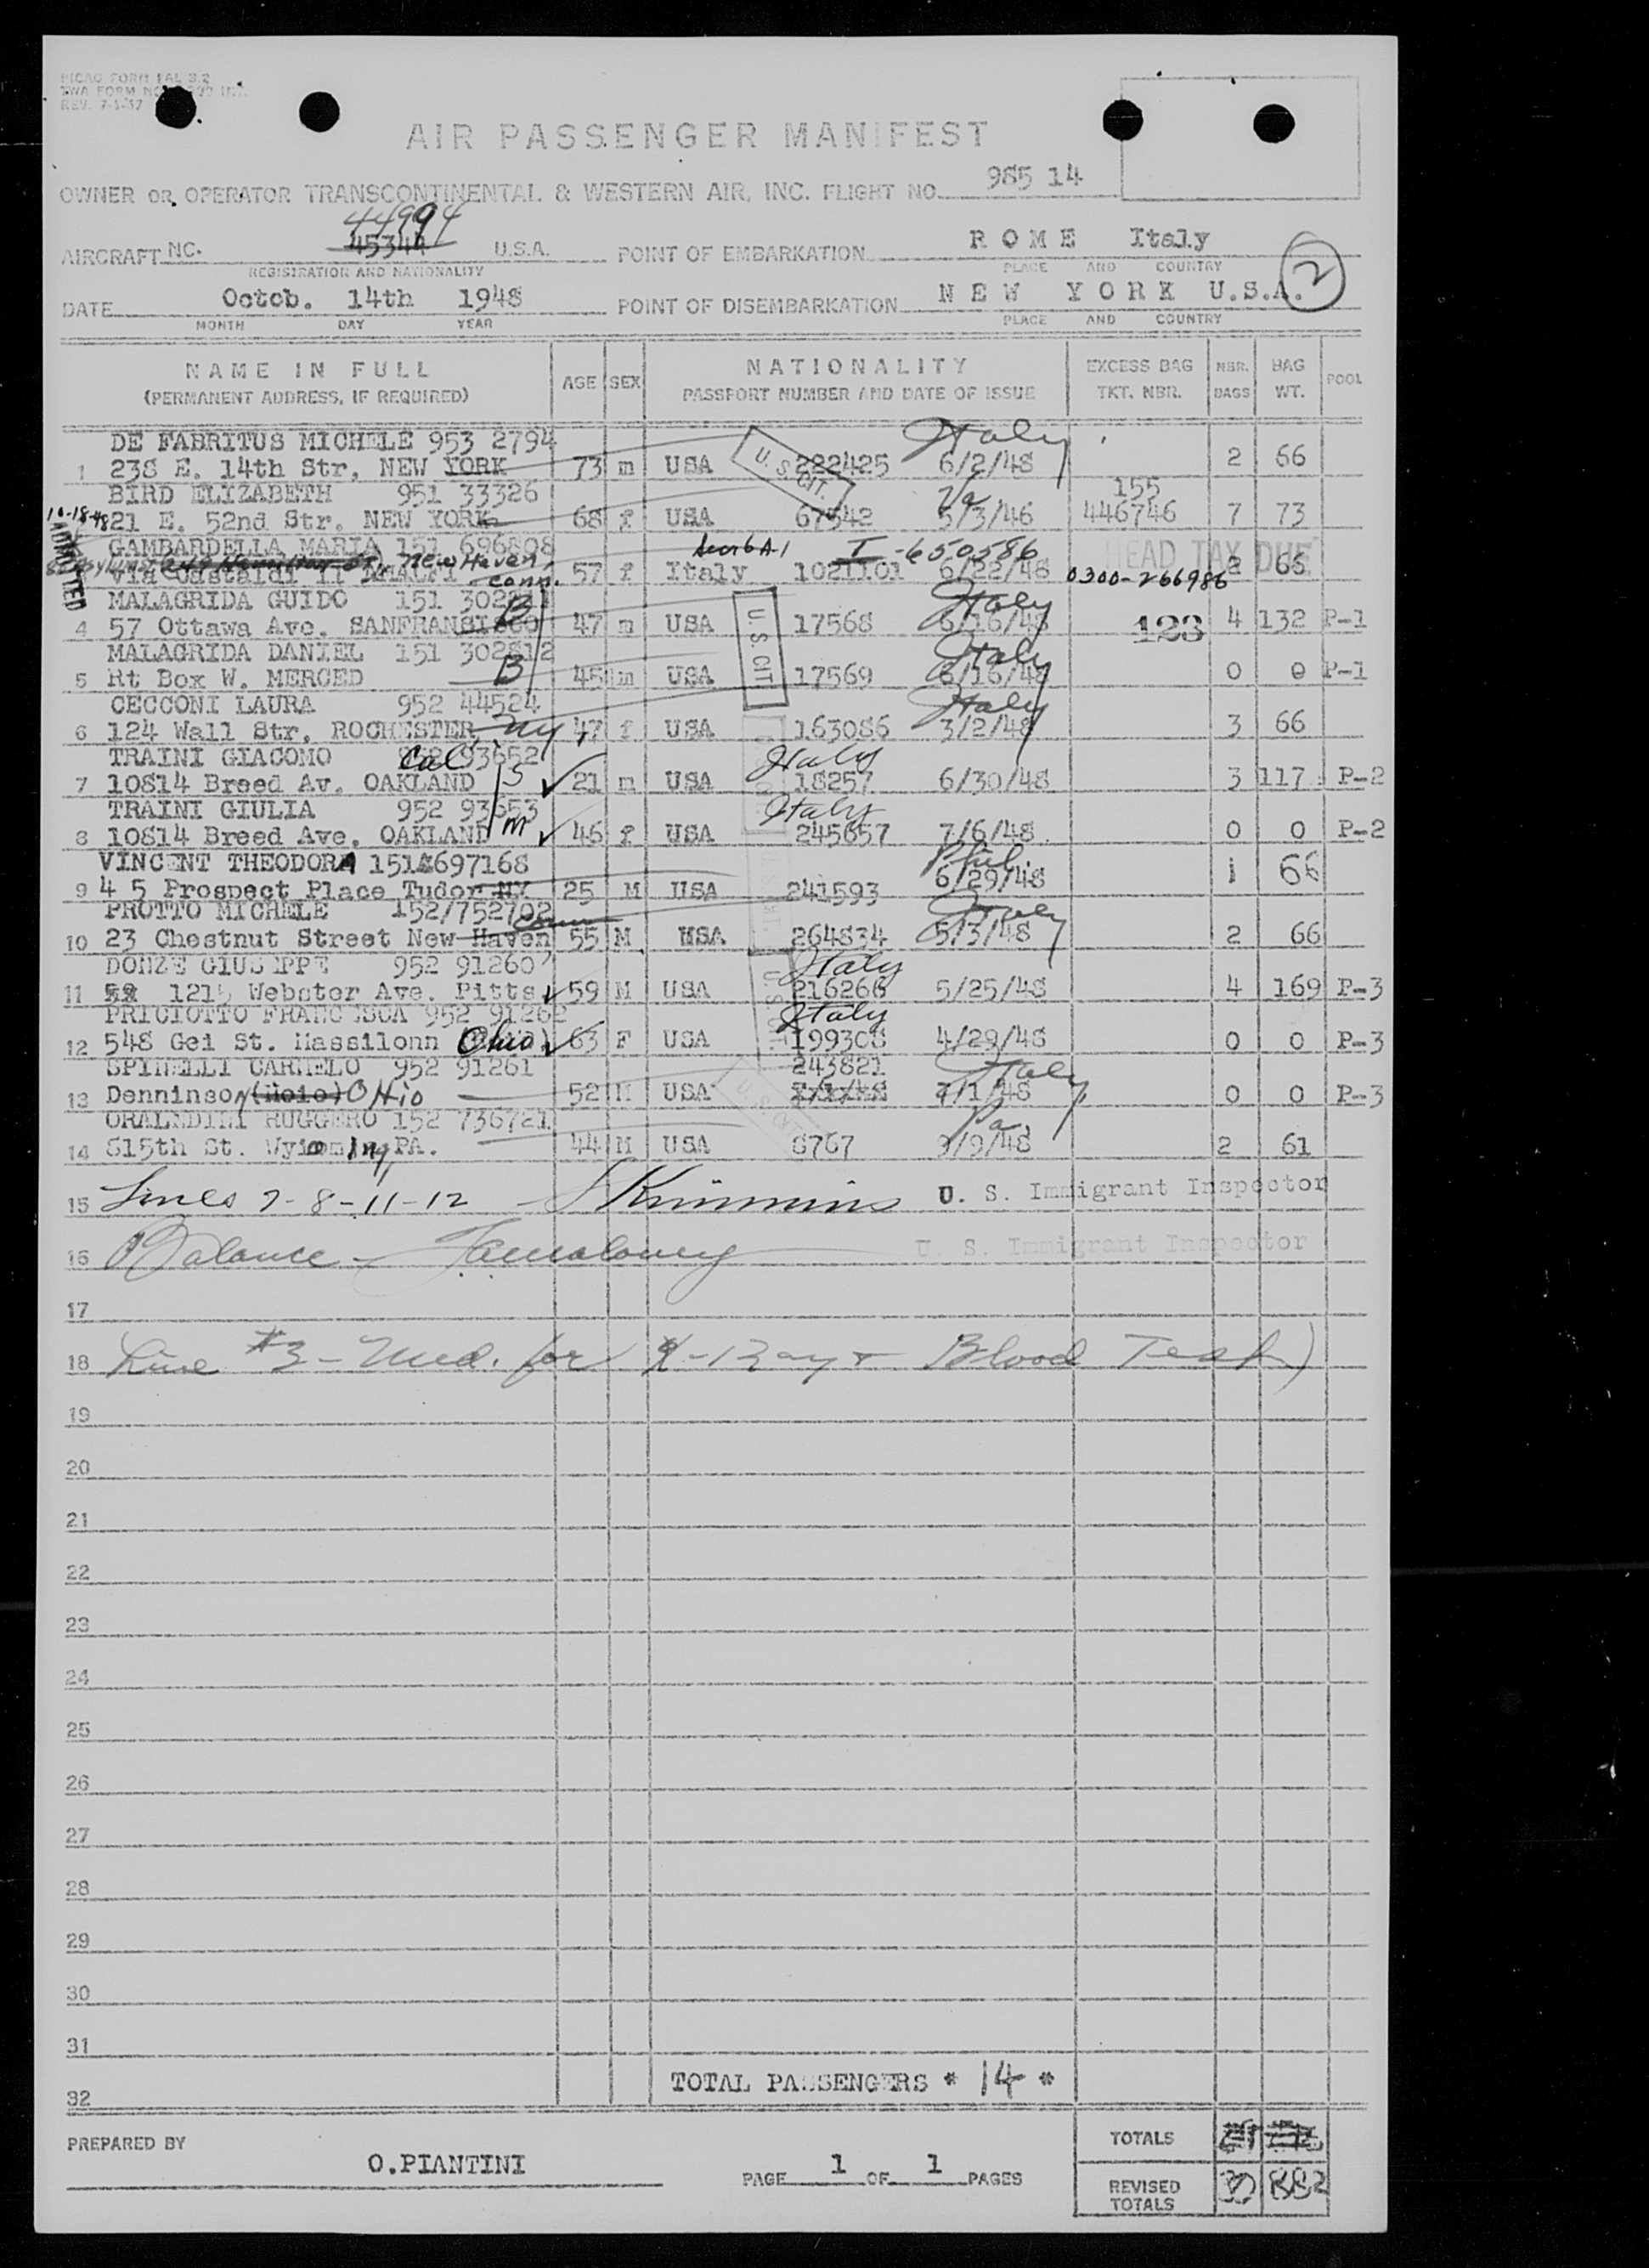 HICAO FORM FAL S.2
TWA FORM NO
REV. 7-1-37
AIR PASSENGER MANIFEST
OWNER OR OPERATOR TRANSCONTINENTAL & WESTERN AIR, INC. FLIGHT NO. 985 14
44994
AIRCRAFT NC. 45344 U.S.A. POINT OF EMBARKATION ROME Italy
REGISTRATION AND NATIONALITY PLACE AND COUNTRY
2
DATE Octob. 14th 1948 POINT OF DISEMBARKATION NEW YORK U.S.A.
MONTH DAY YEAR PLACE AND COUNTRY
NAME IN FULL AGE SEX NATIONALITY EXCESS BAG NBR. BAG POOL
(PERMANENT ADDRESS, IF REQUIRED) PASSPORT NUMBER AND DATE OF ISSUE TKT. NBR. BAGS WT.
DE FABRITUS MICHELE 953 2794 Italy
1 238 E. 14th Str, NEW YORK 73 m USA U.S. CIT. 222425 6/2/48 2 66
BIRD ELIZABETH 951 33326 Va. 155
10-18-48 21 E. 52nd Str. NEW YORK 68 f USA 67542 5/3/46 446746 7 73
ADMITTED
GAMBARDELLA MARIA 151 696808 I-650586 HEAD TAX DUE
249 Hamilton St. New Haven, conn.
via Gastaldi 11 57 f Italy 1021101 6/22/48 0300-266986 2 66
MALAGRIDA GUIDO 151 B Italy
4 57 Ottawa Ave. SANFRANSISCO 47 m USA U.S. CIT 17568 6/16/48 123 4 132 P-1
MALAGRIDA DANIEL 151 302812 Italy
5 Rt Box W. MERCED B 45 m USA 17569 6/16/48 0 0 P-1
CECCONI LAURA 952 44524 Italy
6 124 Wall Str. ROCHESTER NY 47 f USA 163086 3/2/48 3 66
TRAINI GIACOMO Cal 952 93652 Italy
7 10814 Breed Av. OAKLAND S 21 m USA 18257 6/30/48 3 117 P-2
TRAINI GIULIA 952 93653 Italy
8 10814 Breed Ave. OAKLAND M 46 f USA 245657 7/6/48 0 0 P-2
VINCENT THEODORA 151 697168 Phil.
9 4 5 Prospect Place Tudor NY 25 M USA 241593 6/29/48 1 66
PROTTO MICHELE 152/752702 Conn Italy
10 23 Chestnut Street New Haven 55 M USA 264834 5/3/48 2 66
DONZE GIUSEPPE 952 91260 Italy
11 1215 Webster Ave. Pitts 59 M USA 216266 5/25/48 4 169 P-3
PRICIOTTO FRANCISCA 952 91262 Italy
12 548 Gei St. Massilonn Ohio 63 F USA 199308 4/29/48 0 0 P-3
SPINELLI CARMELO 952 91261 243821 Italy
13 Denninson (Hoio) OHio 52 M USA 7/1/48 7/1/48 0 0 P-3
ORALNDINI RUGGERO 152 736721 Pa.
14 615th St. Wyioming PA. 44 M USA 8767 9/9/48 2 61
15 Lines 7-8-11-12 - Kimmins U. S. Immigrant Inspector
16 Balance - U. S. Immigrant Inspector
17
18 Line #3 - Med. for X-Ray & Blood Test)
19
20
21
22
23
24
25
26
27
28
29
30
31
TOTAL PASSENGERS * 14 *
32
PREPARED BY TOTALS
O.PIANTINI PAGE 1 OF 1 PAGES
REVISED TOTALS 30 882